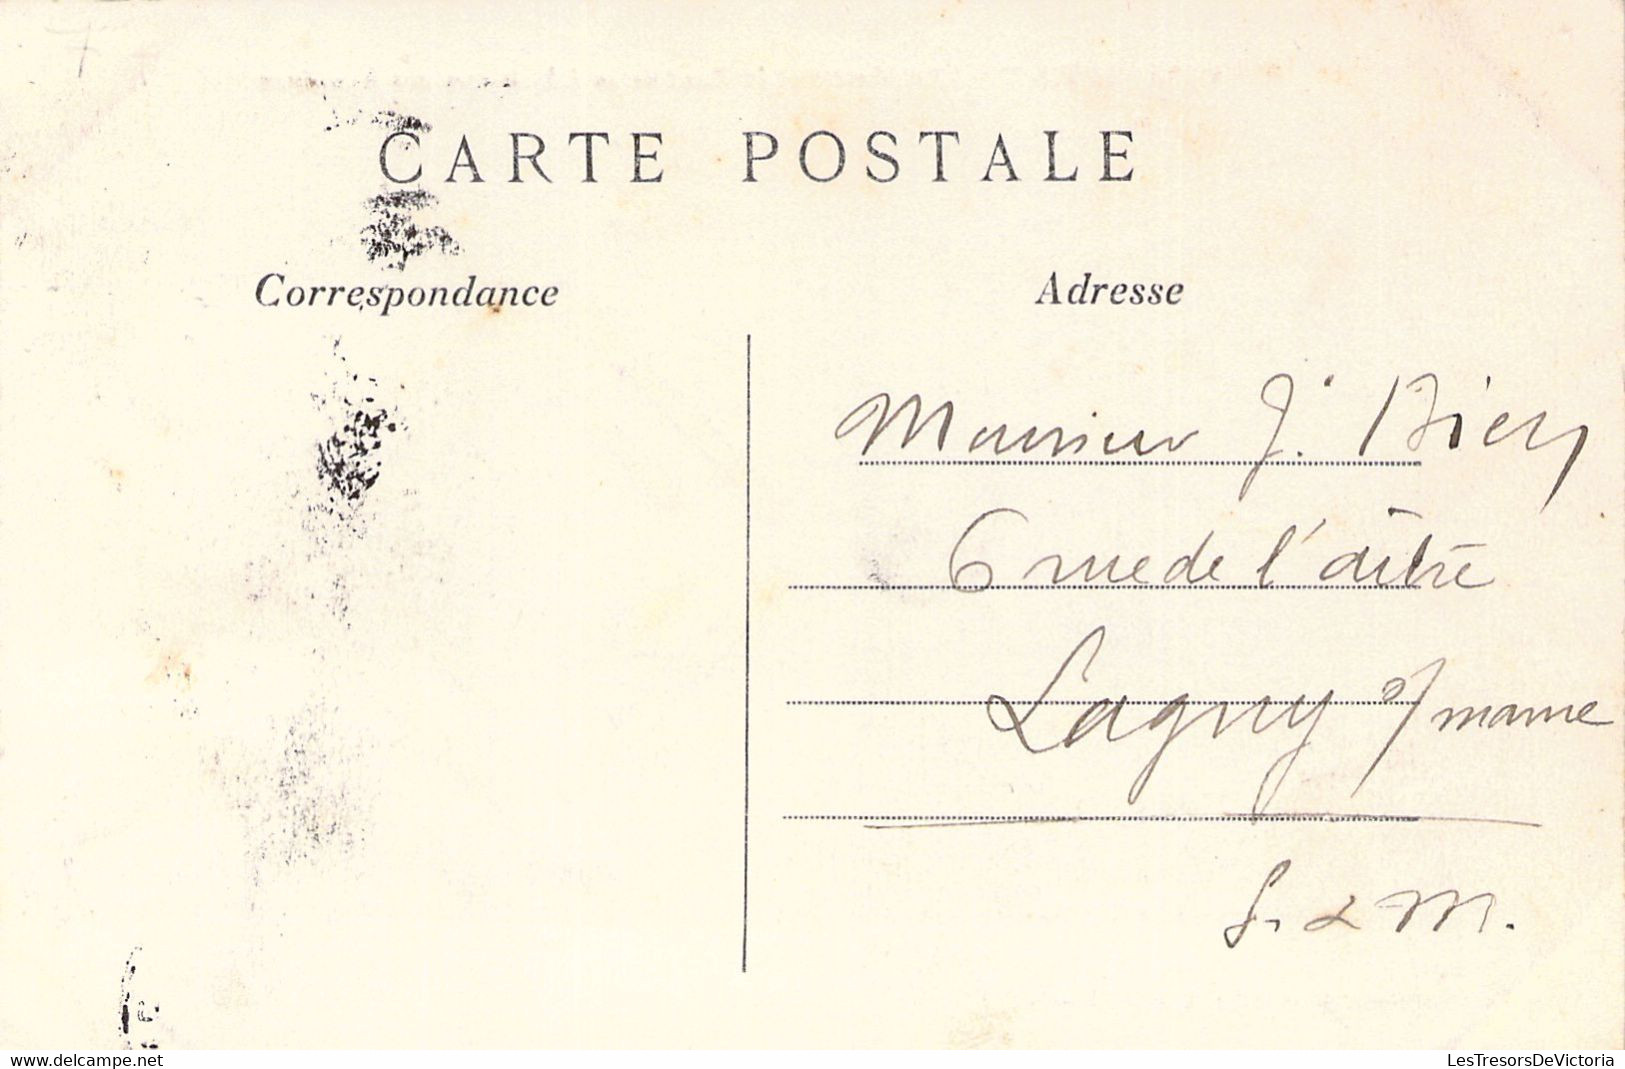 CARTE POSTALE
Correspondance
Adresse
Monsieur J. Biery
6 rue de l'aître
Lagny s/ marne
S. & M.
delcampe.net
LesTresorsDeVictoria